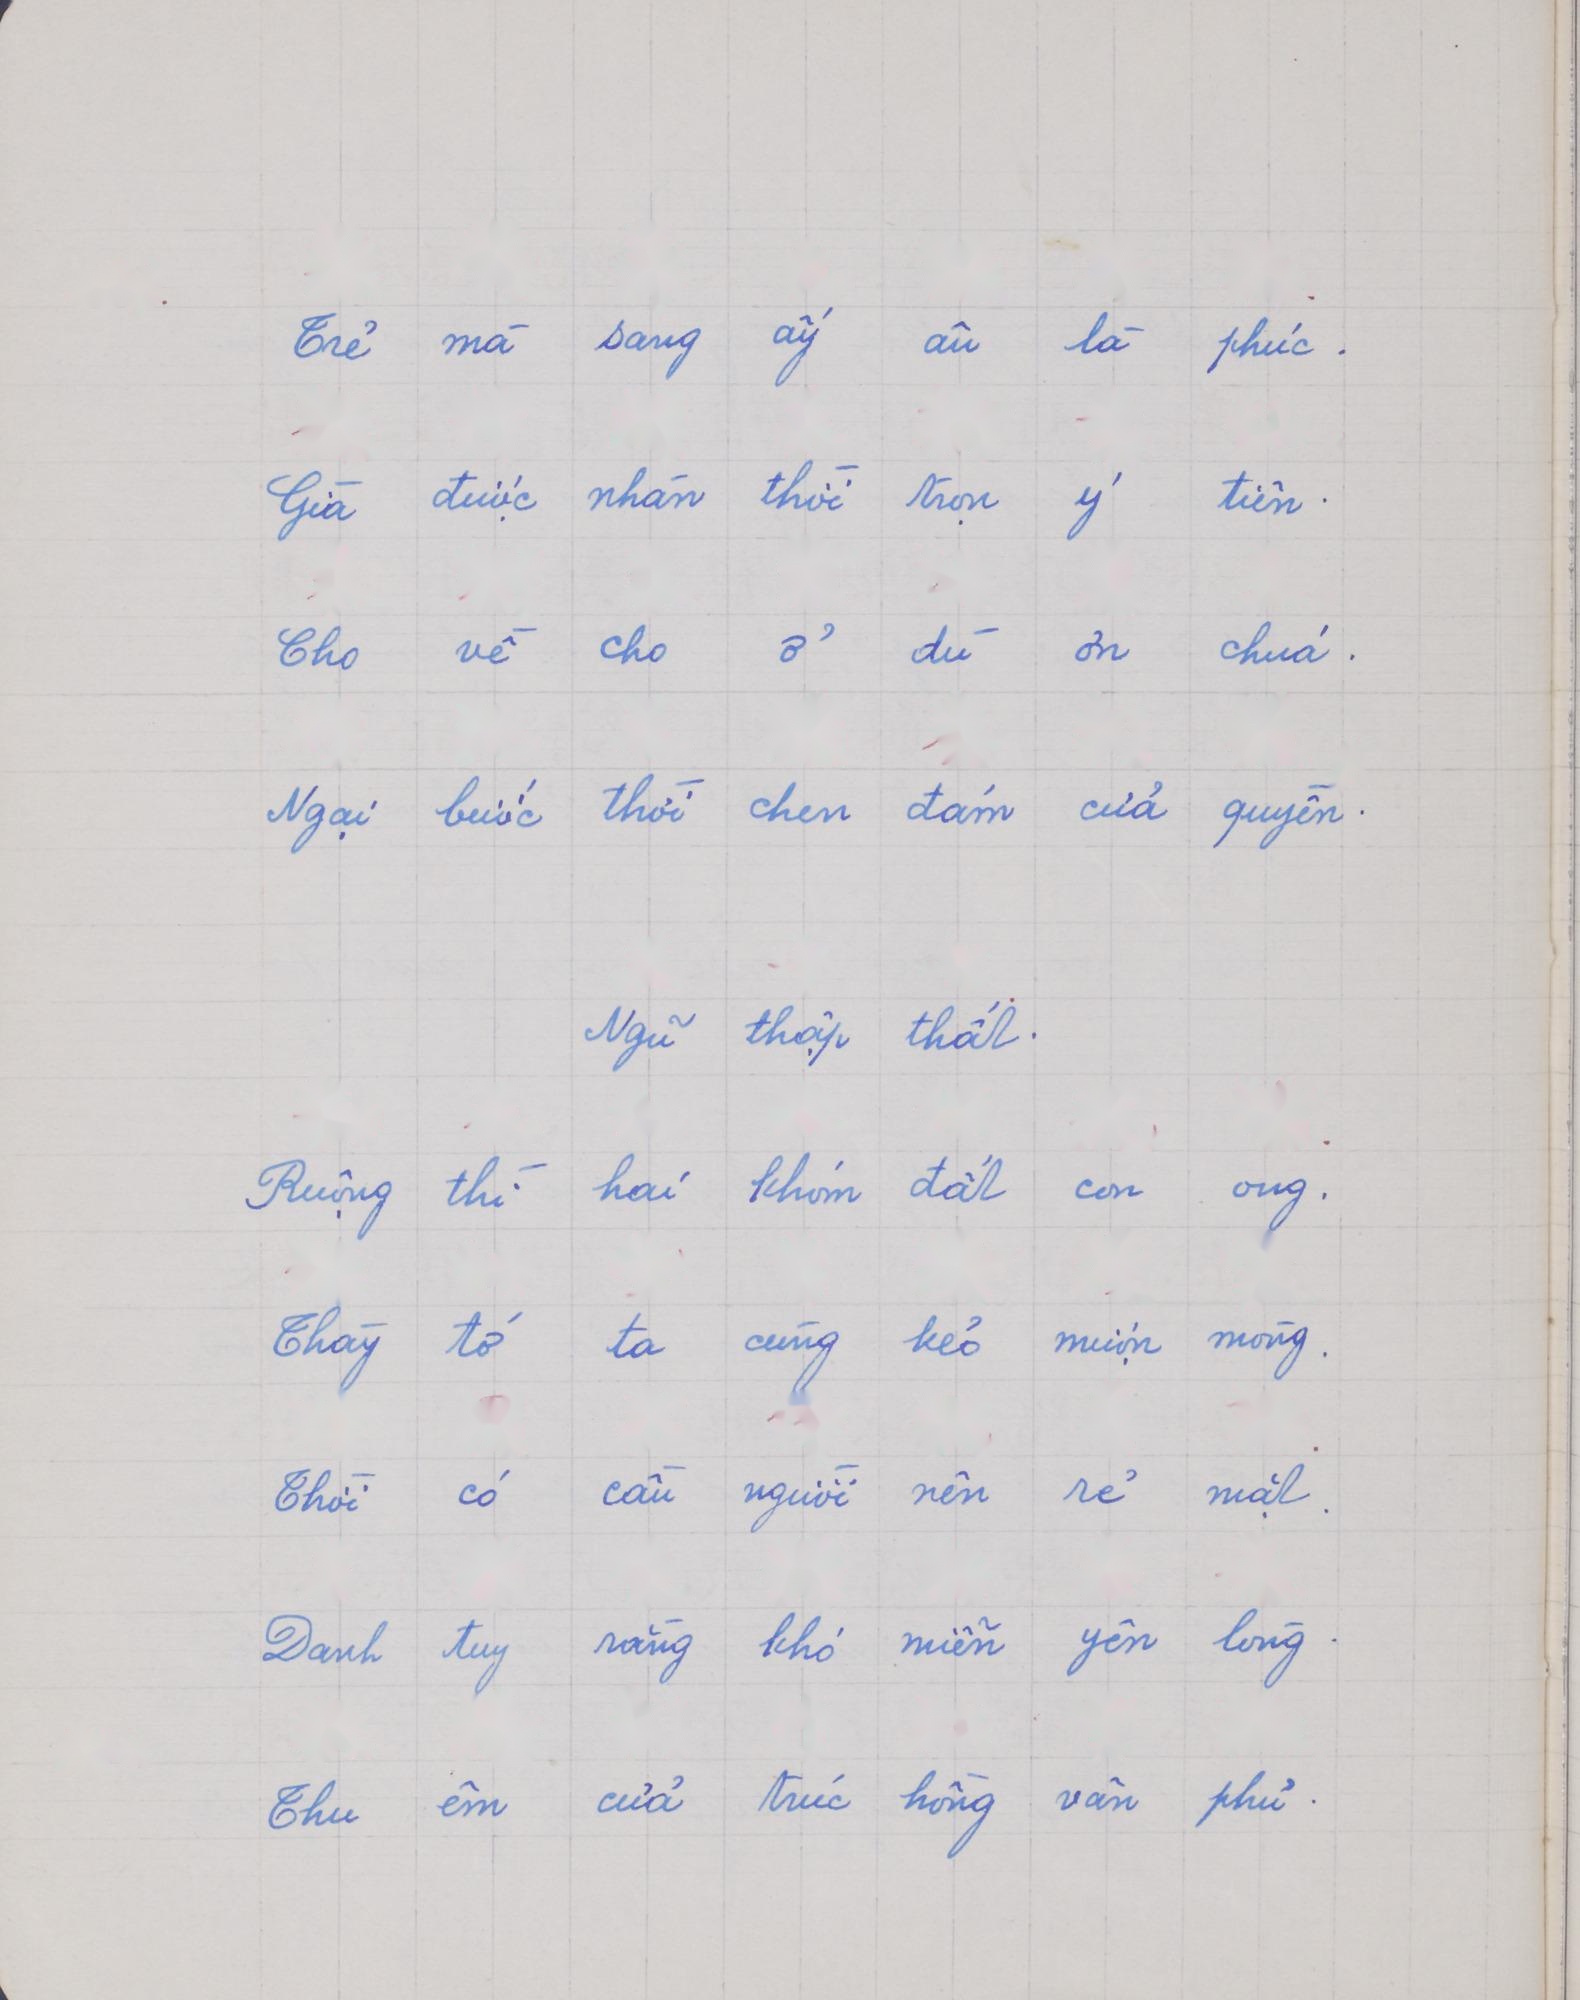 Trẻ mà sang ấy âu là phúc.
Già được nhàn thời trọn ý tiên.
Cho về cho ở dù ơn chuá.
Ngại bước thời chen đám cửa quyền.
Ngũ thập thất.
Ruộng thì hai khóm đất con ong.
Thầy tớ ta cùng kẻo mướn mòng.
Thời có cầu người nên rẻ mặt.
Danh tuy rằng khó miễn yên lòng.
Thu êm cửa trúc hồng vân phủ.